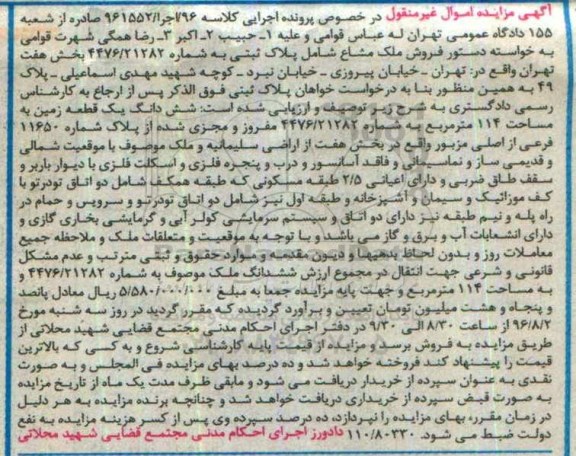 آگهی مزایده اموال غیرمنقول در خصوص پرونده اجرایی کلاسه ۹۶/اجرا/۹۶۱۵۵۲ صادره از شعبه
۱۵۵ دادگاه عمومی تهران له عباس قوامی و علیه ۱- حبیب ۲- اکبر ۳- رضا همگی شهرت قوامی
به خواسته دستور فروش ملک مشاع شامل پلاک ثبتی به شماره ۴۴۷۶/۲۱۲۸۲ بخش هفت
تهران واقع در: تهران - خیابان پیروزی - خیابان نبرد - کوچه شهید مهدی اسماعیلی - پلاک
۴۹ به همین منظور بنا به درخواست خواهان پلاک ثبتی فوق الذکر پس از ارجاع به کارشناس
رسمی دادگستری به شرح زیر توصیف و ارزیابی شده است: شش دانگ یک قطعه زمین به
مساحت ۱۱۴ مترمربع به شماره ۴۴۷۶/۲۱۲۸۲ مفروز و مجزی شده از پلاک شماره ۱۱۶۵۰
فرعی از اصلی مزبور واقع در بخش هفت از اراضی سلیمانیه و ملک موصوف با موقعیت شمالی
و قدیمی ساز و نماسیمانی و فاقد آسانسور و درب و پنجره فلزی و اسکلت فلزی با دیوار باربر و
سقف طاق ضربی و دارای اعیانی ۲/۵ طبقه مسکونی که طبقه همکف شامل دو اتاق تودرتو با
کف موزائیک و سیمان و آشپزخانه و طبقه اول نیز شامل دو اتاق تودرتو و سرویس و حمام در
راه پله و نیم طبقه نیز دارای دو اتاق و سیستم سرمایشی کولر آبی و گرمایشی بخاری گازی و
دارای انشعابات آب و برق و گاز می باشد و با توجه به موقعیت و متعلقات ملک و ملاحظه جمیع
معاملات روز و بدون لحاظ بدهیها و دیون مقدمه و موارد حقوق و ثبقی مترتب و عدم مشکل
قانونی و شرعی جهت انتقال در مجموع ارزش ششدانگ ملک موصوف به شماره ۴۴۷۶/۲۱۲۸۲ و
به مساحت ۱۱۴ مترمربع و جهت پایه مزایده جمعا به مبلغ ۵/۵۸۰/۰۰۰/۰۰۰ ریال معادل پانصد
و پنجاه و هشت میلیون تومان تعیین و برآورد گردیده که مقرر گردید در روز سه شنبه مورخ
۹۶/۸/۲ از ساعت ۸/۳۰ الی ۹/۳۰ در دفتر اجرای احکام مدنی مجتمع قضایی شهید محلاتی از
طریق مزایده به فروش برسد و مزایده از قیمت پایه کارشناسی شروع و به کسی که بالاترین
قیمت را پیشنهاد کند فروخته خواهد شد و ده درصد بهای مزایده فی المجلس و به صورت
نقدی به عنوان سپرده از خریدار دریافت می شود و مابقی ظرف مدت یک ماه از تاریخ مزایده
به صورت قبض سپرده از خریداری دریافت خواهد شد و چنانچه برنده مزایده به هر دلیل
در زمان مقرر، بهای مزایده را نپردازد، ده درصد سپرده وی پس از کسر هزینه مزایده به نفع
دولت ضبط می شود. ۱۱۰/۸۰۳۳۰ دادورز اجرای احکام مدنی مجتمع قضایی شهید محلاتی